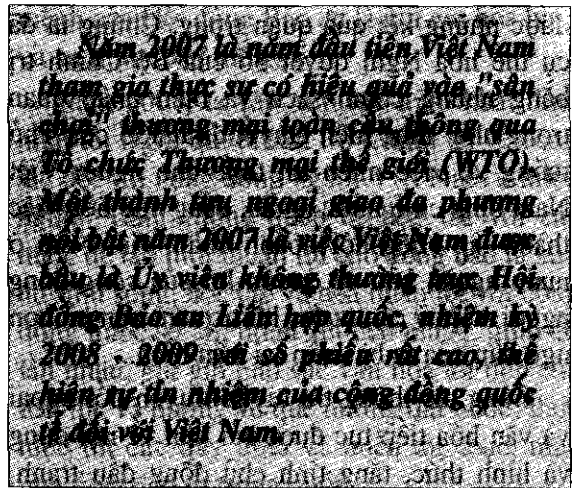 Năm 2007 là năm đầu tiên Việt Nam
tham gia thực sự có hiệu quả vào "sân
chơi" thương mại toàn cầu thông qua
Tổ chức Thương mại thế giới (WTO).
Một thành tựu ngoại giao đa phương
nổi bật năm 2007 là việc Việt Nam được
bầu là Ủy viên không thường trực Hội
đồng Bảo an Liên hợp quốc, nhiệm kỳ
2008 - 2009 với số phiếu rất cao, thể
hiện sự tín nhiệm của cộng đồng quốc
tế đối với Việt Nam.